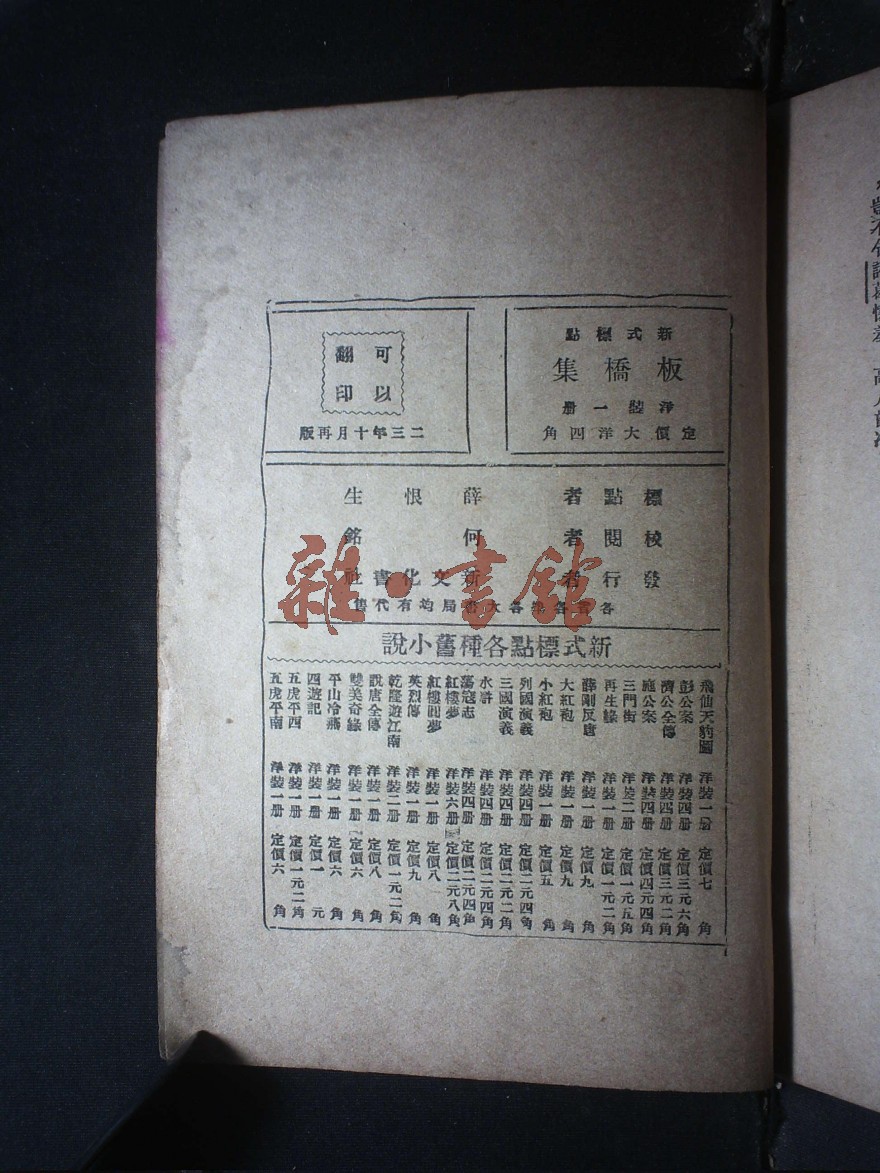 新式標點
板橋集
洋裝一册
定價大洋四角
可以
翻印
二三年十月再版
標點者 薛恨生
校閱者 何銘
發行者 新文化書社
各省各埠各大書局均有代售
雜·書館
新式標點各種舊小說
飛仙天豹圖 洋裝一册 定價七角
彭公案 洋裝四册 定價三元六角
濟公全傳 洋裝四册 定價三元二角
施公案 洋裝四册 定價四元四角
三門街 洋裝二册 定價一元五角
再生緣 洋裝一册 定價一元二角
薛剛反唐 洋裝一册 定價九角
大紅袍 洋裝一册 定價九角
小紅袍 洋裝一册 定價五角
列國演義 洋裝四册 定價二元四角
三國演義 洋裝四册 定價二元二角
水滸 洋裝四册 定價二元四角
蕩寇志 洋裝四册 定價二元四角
紅樓夢 洋裝六册 定價二元八角
紅樓圓夢 洋裝一册 定價八角
英烈傳 洋裝一册 定價九角
乾隆遊江南 洋裝二册 定價一元二角
說唐全傳 洋裝一册 定價八角
雙美奇緣 洋裝一册 定價六角
平山冷燕 洋裝一册 定價六角
四遊記 洋裝一册 定價一元
五虎平西 洋裝一册 定價一元二角
五虎平南 洋裝一册 定價六角